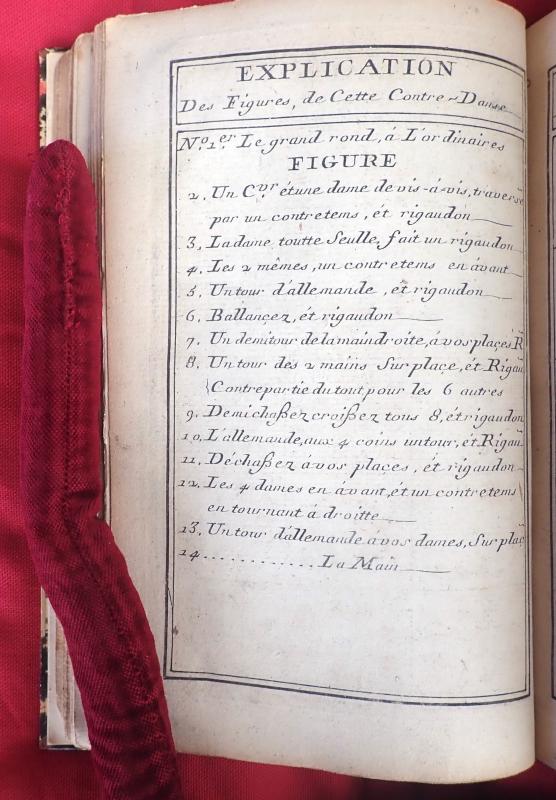 EXPLICATION
Des Figures, de Cette Contre-Danse
No. 1er Le grand rond, á L'ordinaires
FIGURE
2. Un Cver étune dame de vis-á-vis, traverse
par un contretems, ét rigaudon
3, La dame toutte Seulle, fait un rigaudon
4. Les 2 mêmes, un contretems en ávant
5. Un tour d'allemande, ét rigaudon
6. Ballançez, ét rigaudon
7. Un demi tour de la main droite, á vos plaçes R
8. Un tour des 2 mains Sur plaçe, ét Rigau
Contrepartie du tout, pour les 6 autres
9. Demi chaßez croißez tous 8, ét rigaudon
10, L'allemande, aux 4 coins un tour, ét Rigau
11. Déchaßez á vos plaçes, ét rigaudon
12. Les 4 dames en ávant, ét un contretems
en tournant á droitte
13. Un tour d'allemande a vos dames, Sur plaç
14 ............ La Main